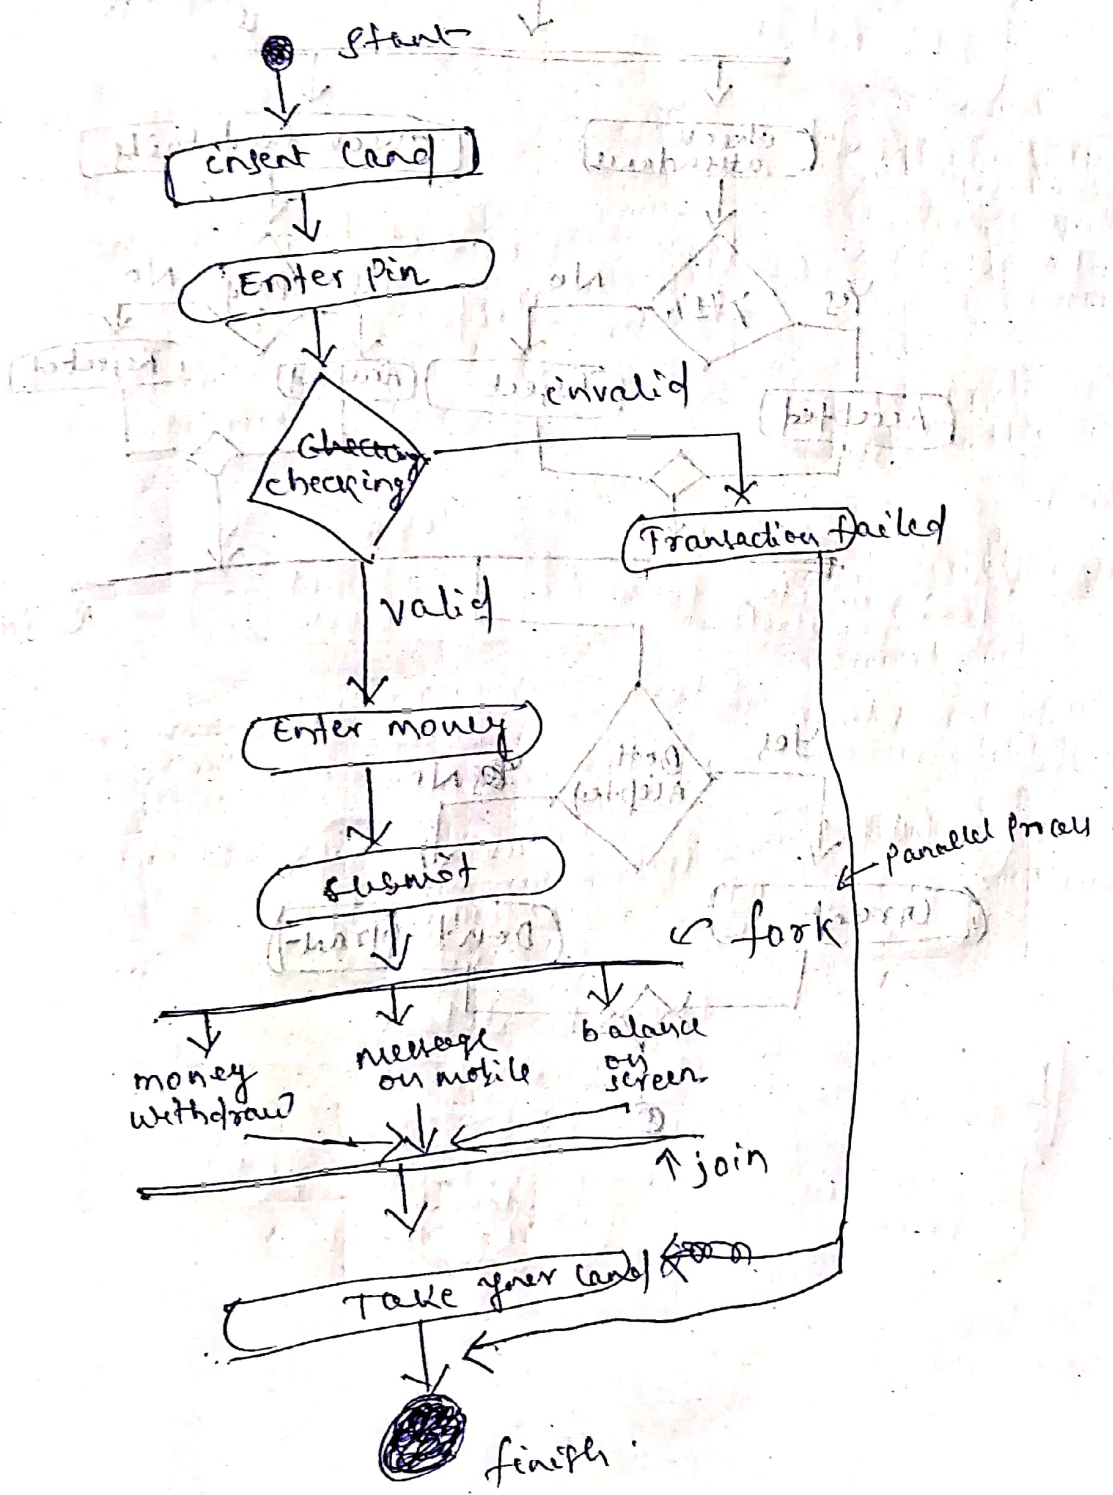 start
insert Card
Enter Pin
invalid
checking
Transaction failed
valid
Enter money
submit
parallel process
fork
money
withdraw
message
on mobile
balance
on
screen
join
Take your card
finish